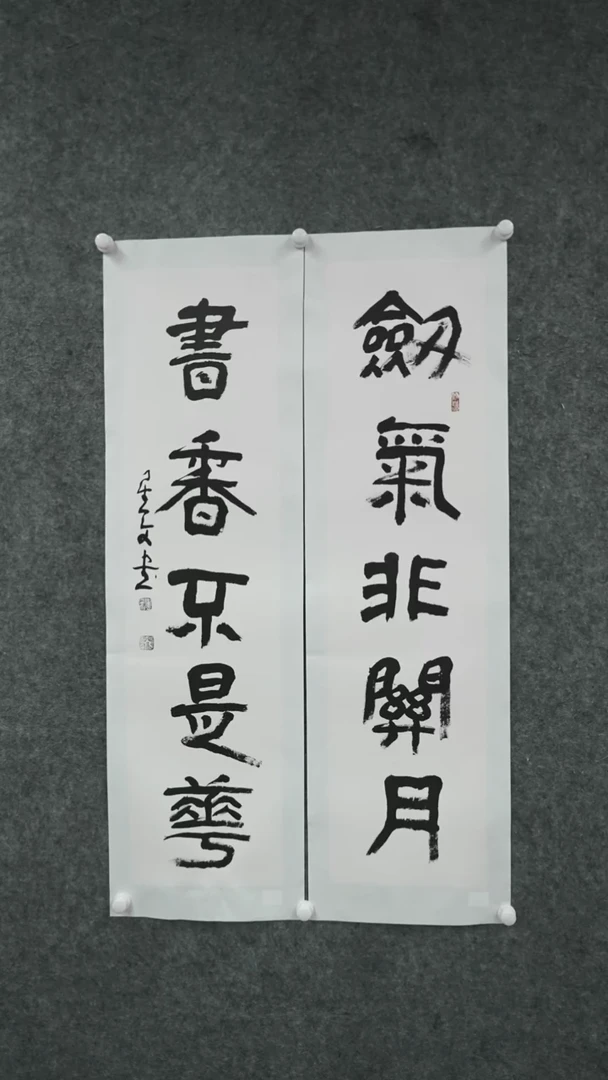 劒氣非關月
書香不是華